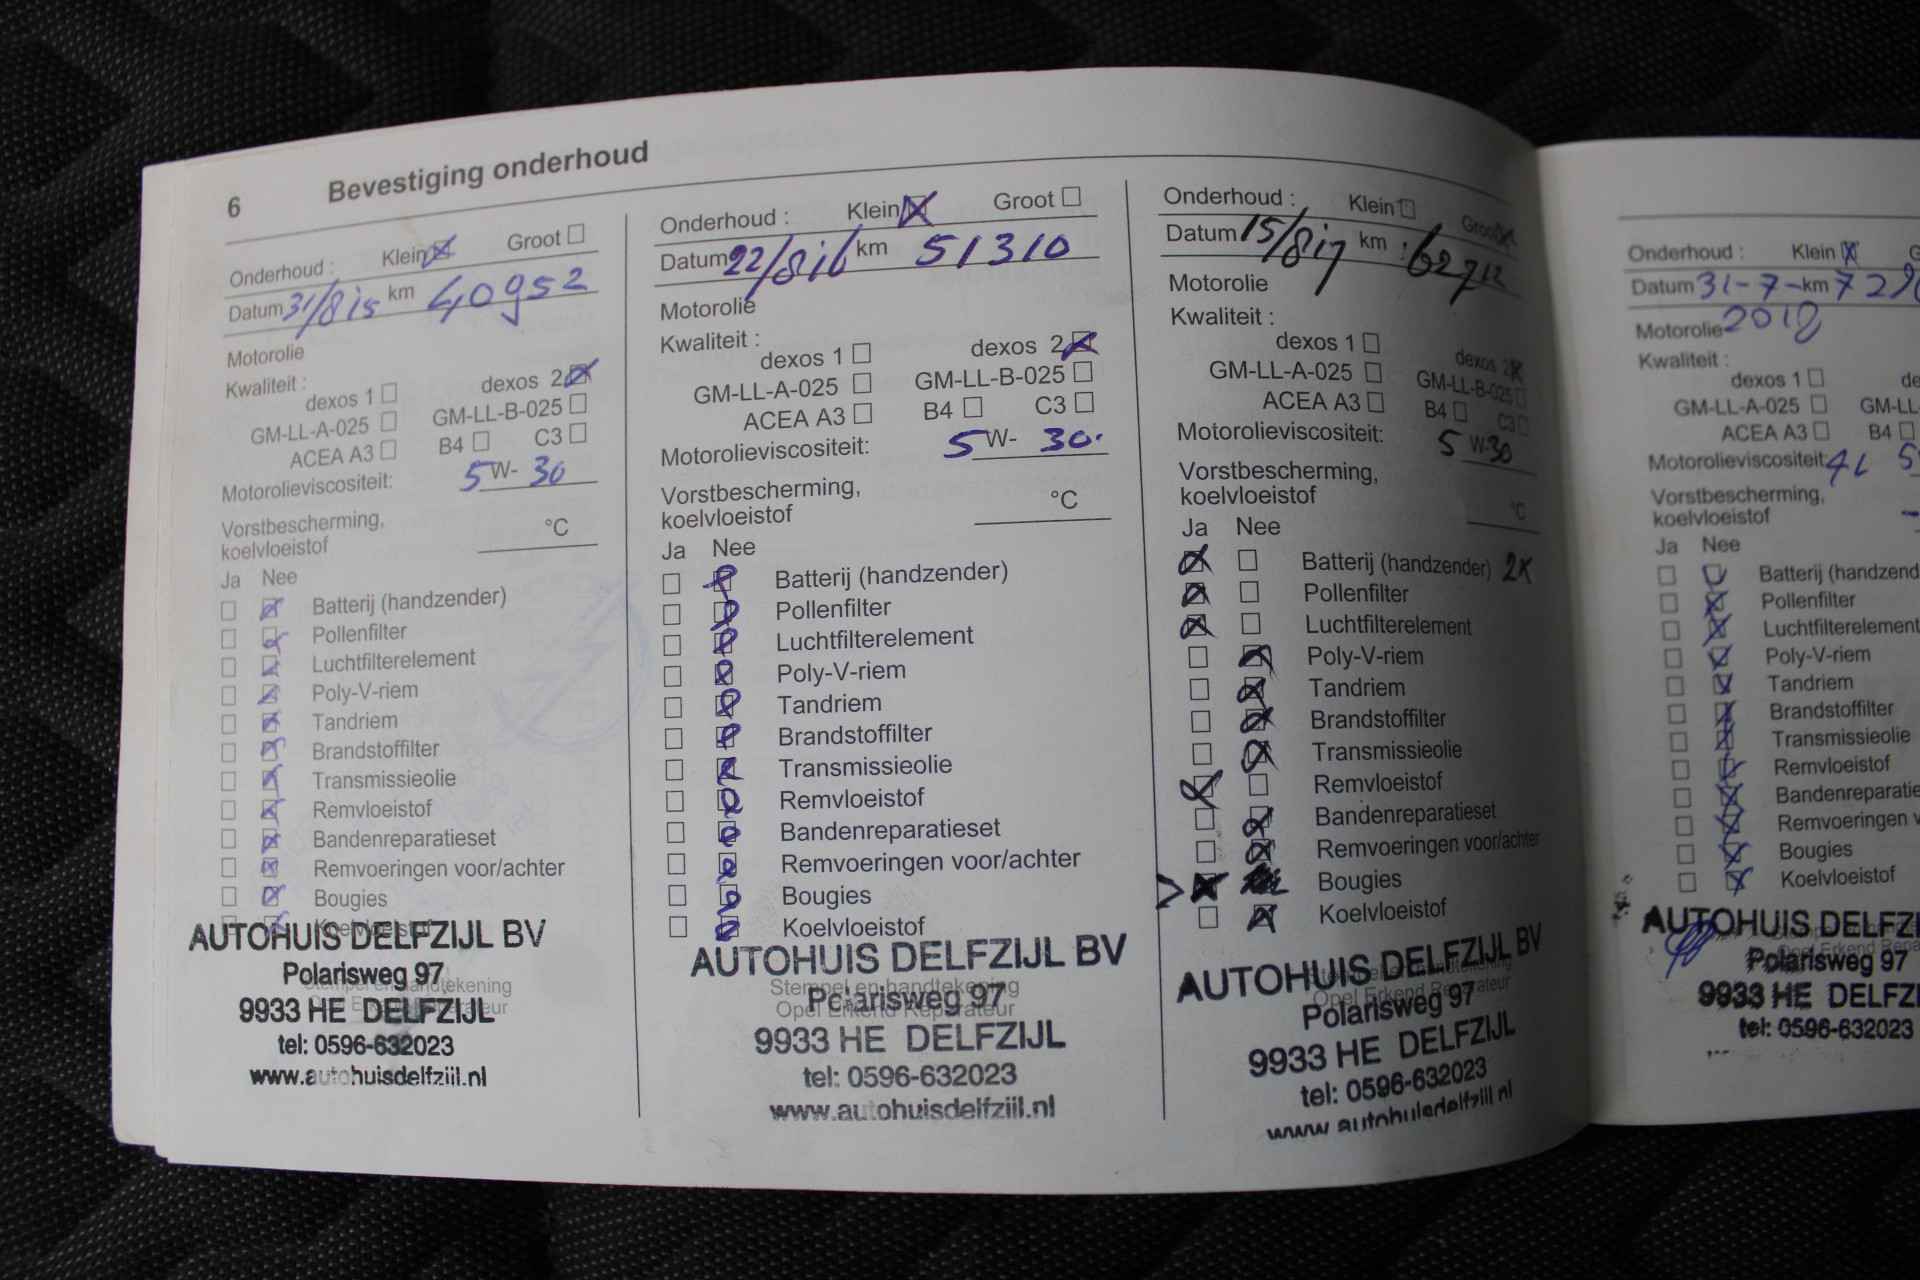 6 Bevestiging onderhoud
Onderhoud : Klein Groot
Datum 31/8 15 km 40952
Motorolie
Kwaliteit :
dexos 1 dexos 2
GM-LL-A-025 GM-LL-B-025
ACEA A3 B4 C3
Motorolieviscositeit: 5 W- 30
Vorstbescherming,
koelvloeistof °C
Ja Nee
Batterij (handzender)
Pollenfilter
Luchtfilterelement
Poly-V-riem
Tandriem
Brandstoffilter
Transmissieolie
Remvloeistof
Bandenreparatieset
Remvoeringen voor/achter
Bougies
Koelvloeistof
AUTOHUIS DELFZIJL BV
Polarisweg 97
Stempel en handtekening
9933 HE DELFZIJL
tel: 0596-632023
www.autohuisdelfzijl.nl
Onderhoud : Klein Groot
Datum 22/8 16 km 51310
Motorolie
Kwaliteit :
dexos 1 dexos 2
GM-LL-A-025 GM-LL-B-025
ACEA A3 B4 C3
Motorolieviscositeit: 5 W- 30.
Vorstbescherming,
koelvloeistof °C
Ja Nee
Batterij (handzender)
Pollenfilter
Luchtfilterelement
Poly-V-riem
Tandriem
Brandstoffilter
Transmissieolie
Remvloeistof
Bandenreparatieset
Remvoeringen voor/achter
Bougies
Koelvloeistof
AUTOHUIS DELFZIJL BV
Stempel en handtekening
Polarisweg 97
Opel Erkend Reparateur
9933 HE DELFZIJL
tel: 0596-632023
www.autohuisdelfzijl.nl
Onderhoud : Klein Groot
Datum 15/8 17 km : 62712
Motorolie
Kwaliteit :
dexos 1 dexos 2
GM-LL-A-025 GM-LL-B-025
ACEA A3 B4 C3
Motorolieviscositeit: 5 W-30
Vorstbescherming,
koelvloeistof °C
Ja Nee
Batterij (handzender) 2x
Pollenfilter
Luchtfilterelement
Poly-V-riem
Tandriem
Brandstoffilter
Transmissieolie
Remvloeistof
Bandenreparatieset
Remvoeringen voor/achter
> Bougies
Koelvloeistof
AUTOHUIS DELFZIJL BV
Stempel en handtekening
Opel Erkend Reparateur
Polarisweg 97
9933 HE DELFZIJL
tel: 0596-632023
www.autohuisdelfzijl.nl
Onderhoud : Klein G
Datum 31-7- km 729
2018
Motorolie
Kwaliteit :
dexos 1 de
GM-LL-A-025 GM-LL
ACEA A3 B4
Motorolieviscositeit: 4L 5
Vorstbescherming,
koelvloeistof
Ja Nee
Batterij (handzend
Pollenfilter
Luchtfilterelement
Poly-V-riem
Tandriem
Brandstoffilter
Transmissieolie
Remvloeistof
Bandenreparatie
Remvoeringen v
Bougies
Koelvloeistof
AUTOHUIS DELFZI
Opel Erkend Repa
Polarisweg 97
9933 HE DELFZI
tel: 0596-632023